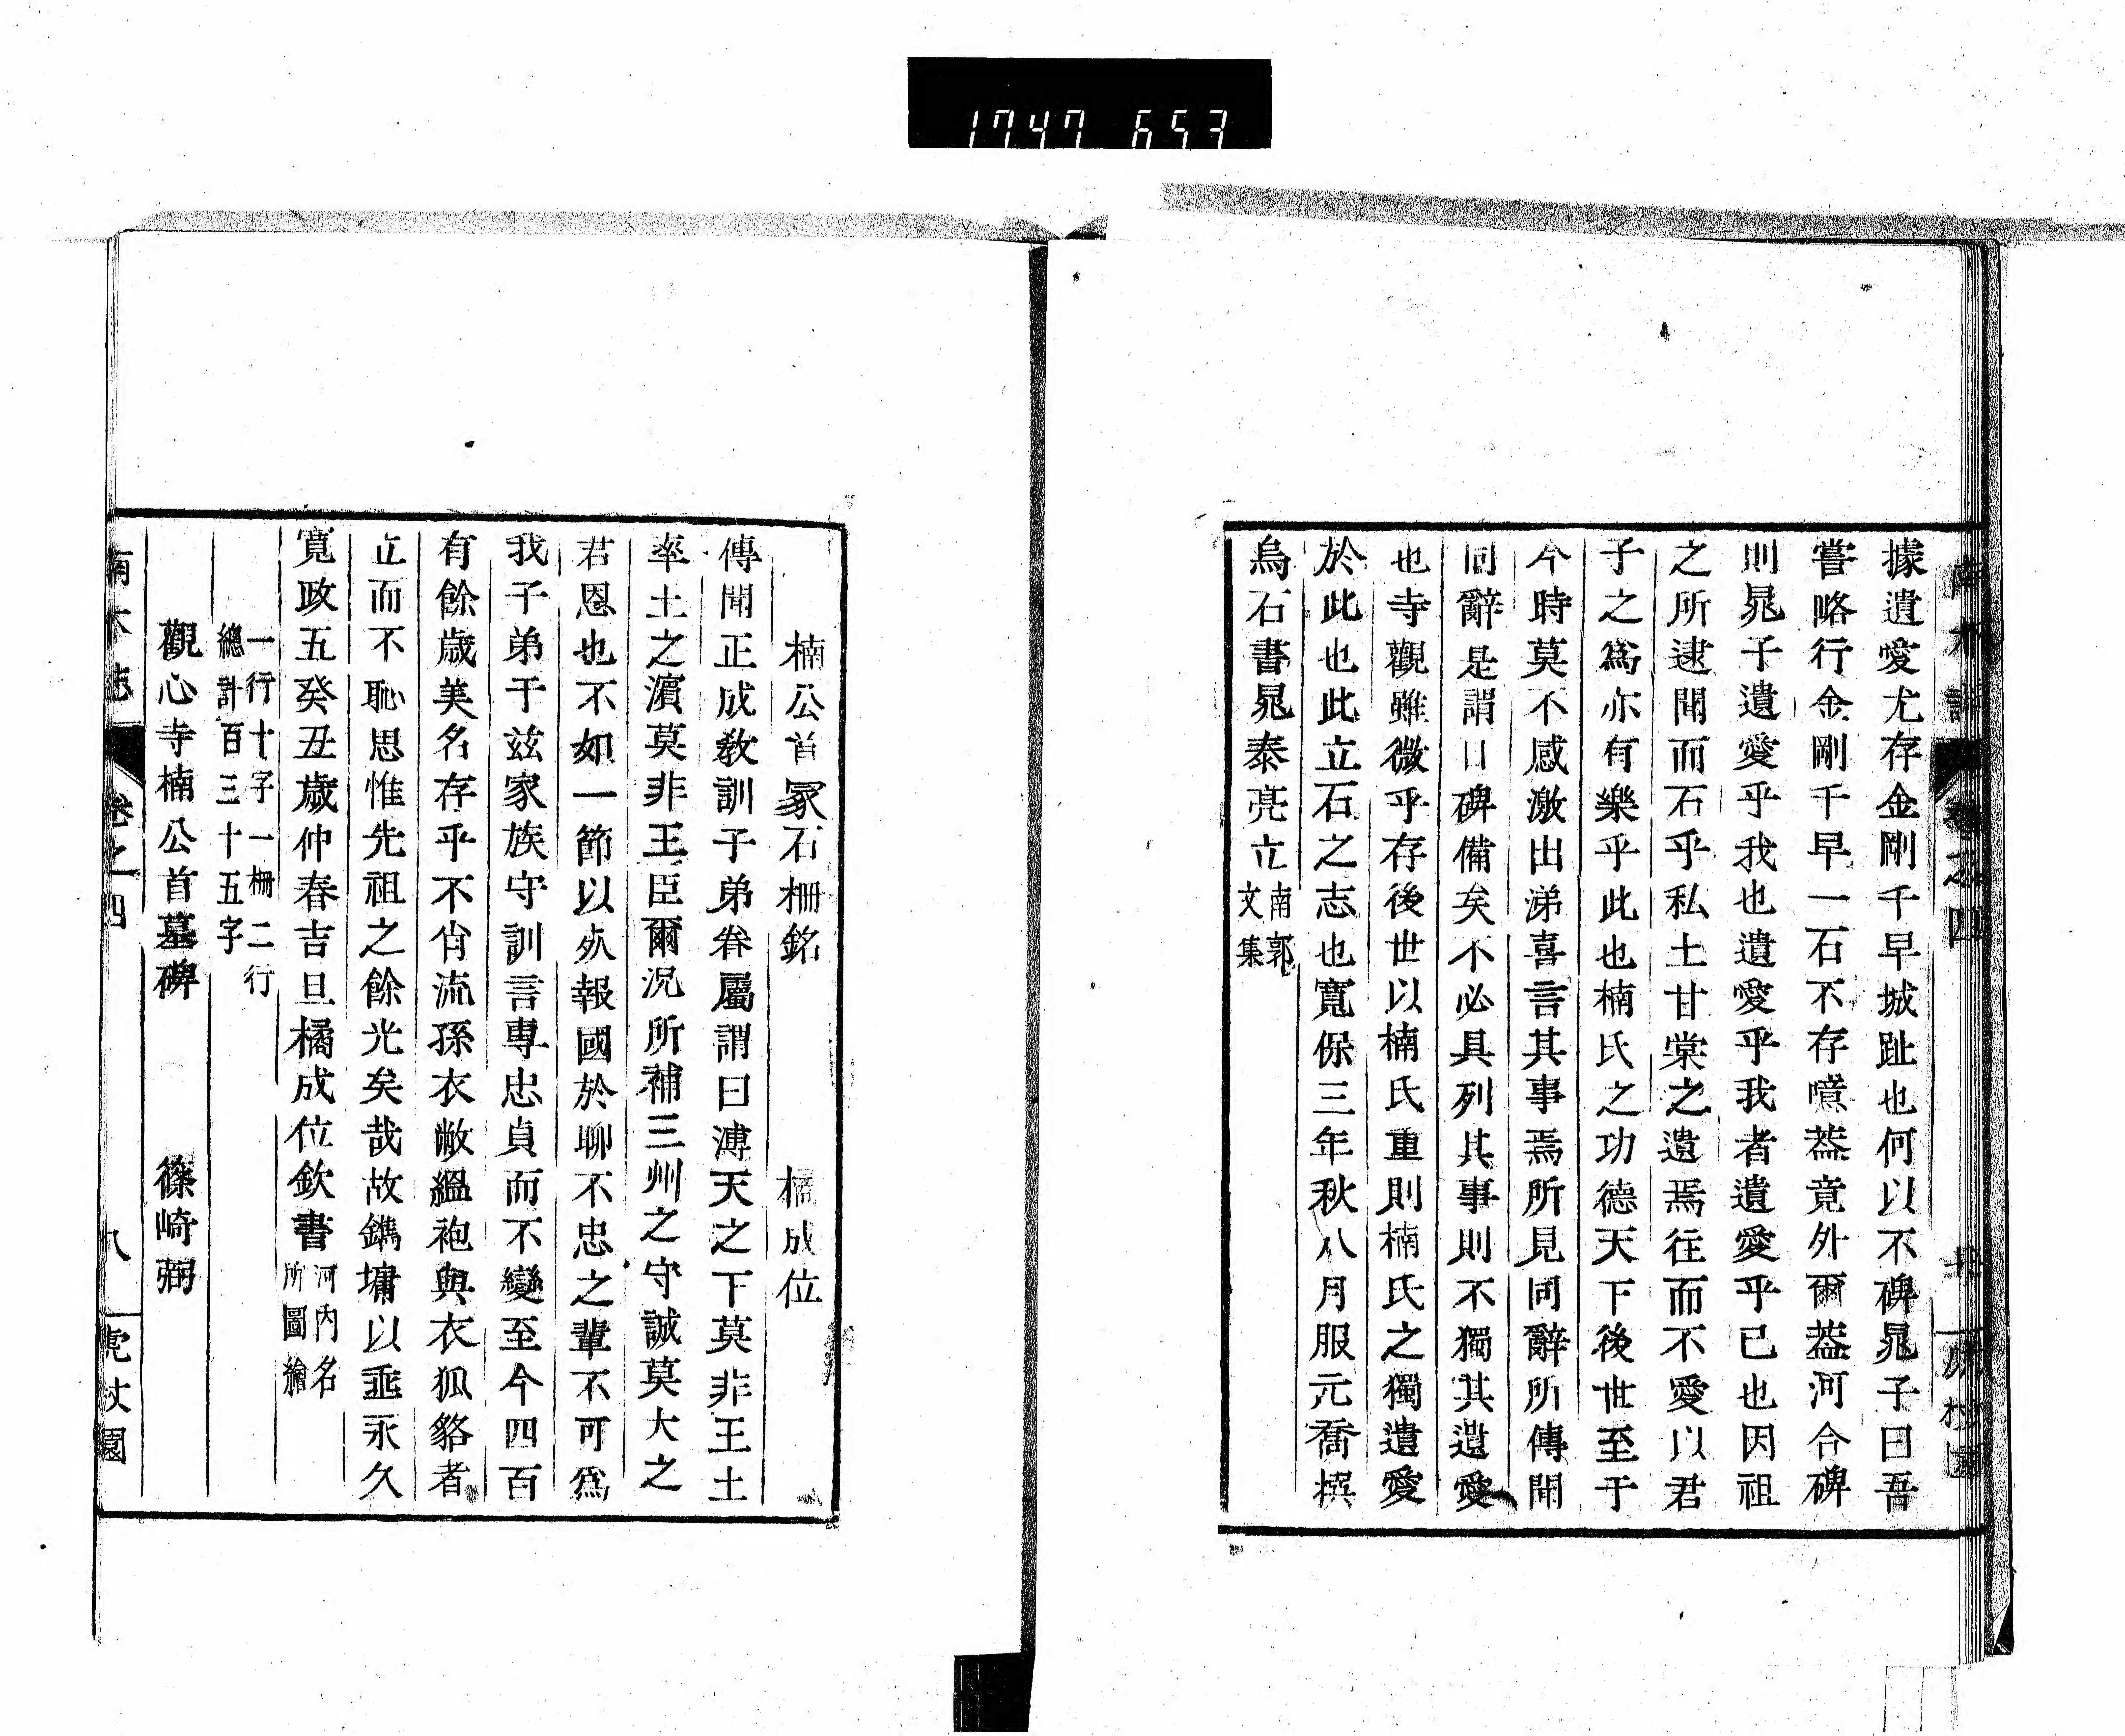 1747 653
據遺愛尤存金剛千早城趾也何以不碑晁子曰吾
嘗略行金剛千早一石不存噫葢竟外爾葢河合碑
則晁子遺愛乎我也遺愛乎我者遺愛乎已也因祖
之所逮聞而石乎私土甘棠之遺焉往而不愛以君
子之爲亦有樂乎此也楠氏之功德天下後世至于
今時莫不感激出涕喜言其事焉所見同辭所傳聞
同辭是謂口碑備矣不必具列其事則不獨其遺愛
也寺觀雖微乎存後世以楠氏重則楠氏之獨遺愛
於此也此立石之志也寬保三年秋八月服元喬撰
烏石書晁泰亮立南郭文集
楠公首冢石柵銘 橘成位
傳聞正成教訓子弟眷屬謂曰溥天之下莫非王土
率土之濱莫非王臣爾況所補三州之守誠莫大之
君恩也不如一節以死報國於聊不忠之輩不可爲
我子弟于兹家族守訓言專忠貞而不變至今四百
有餘歲美名存乎不肖流孫衣敝縕袍與衣狐貉者
立而不恥思惟先祖之餘光矣哉故鐫墉以垂永久
寬政五癸丑歲仲春吉旦橘成位欽書河內名所圖繪
一行十字一柵二行
總計百三十五字
觀心寺楠公首墓碑 篠崎弼
南木誌 卷之四 八 虎杖園